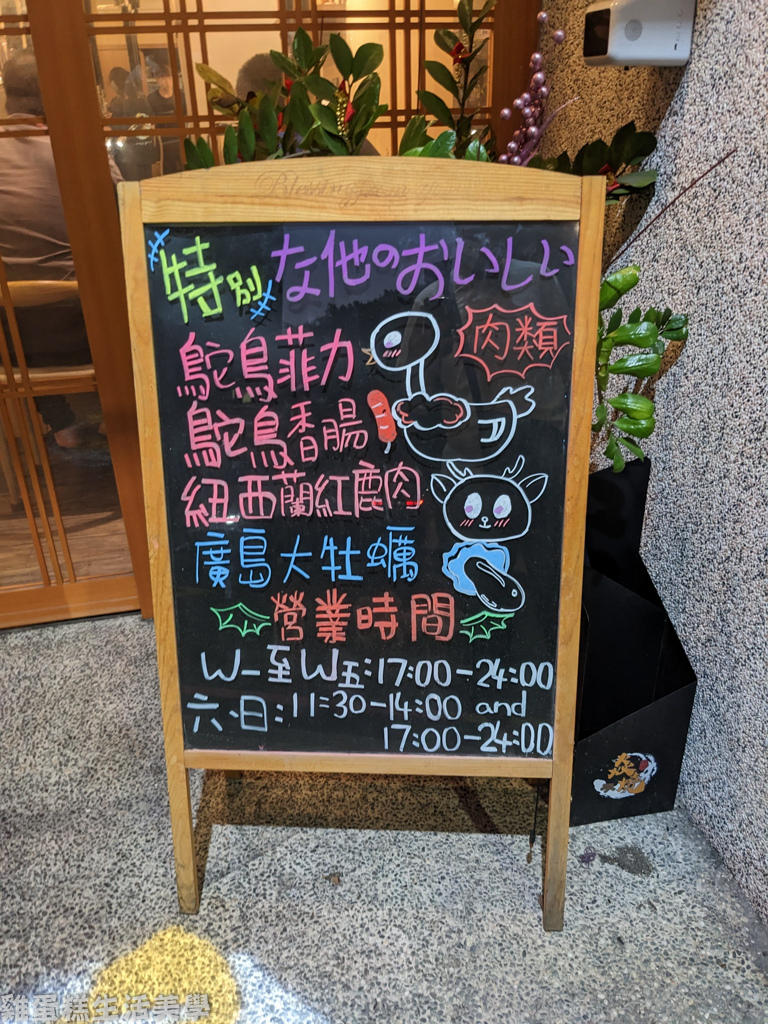 特別な他のおいしい
肉類
鴕鳥菲力
鴕鳥香腸
紐西蘭紅鹿肉
廣島大牡蠣
營業時間
W一至W五:17:00-24:00
六、日:11:30-14:00 and
17:00-24:00
雞蛋糕生活美學